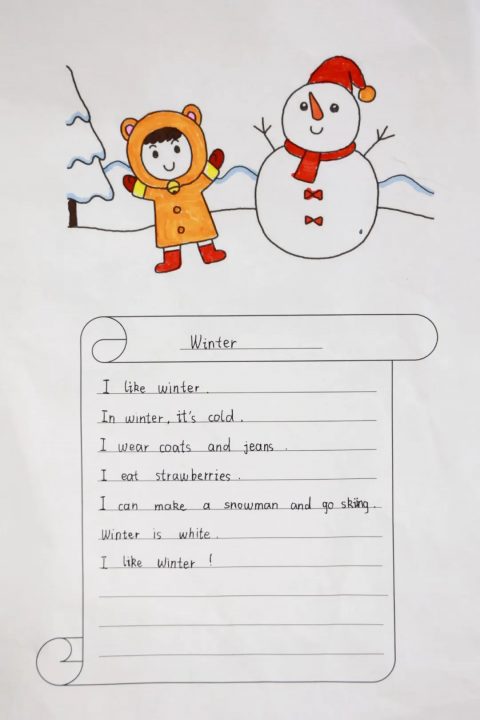 Winter
I like winter.
In winter, it's cold.
I wear coats and jeans.
I eat strawberries.
I can make a snowman and go skiing.
Winter is white.
I like winter!